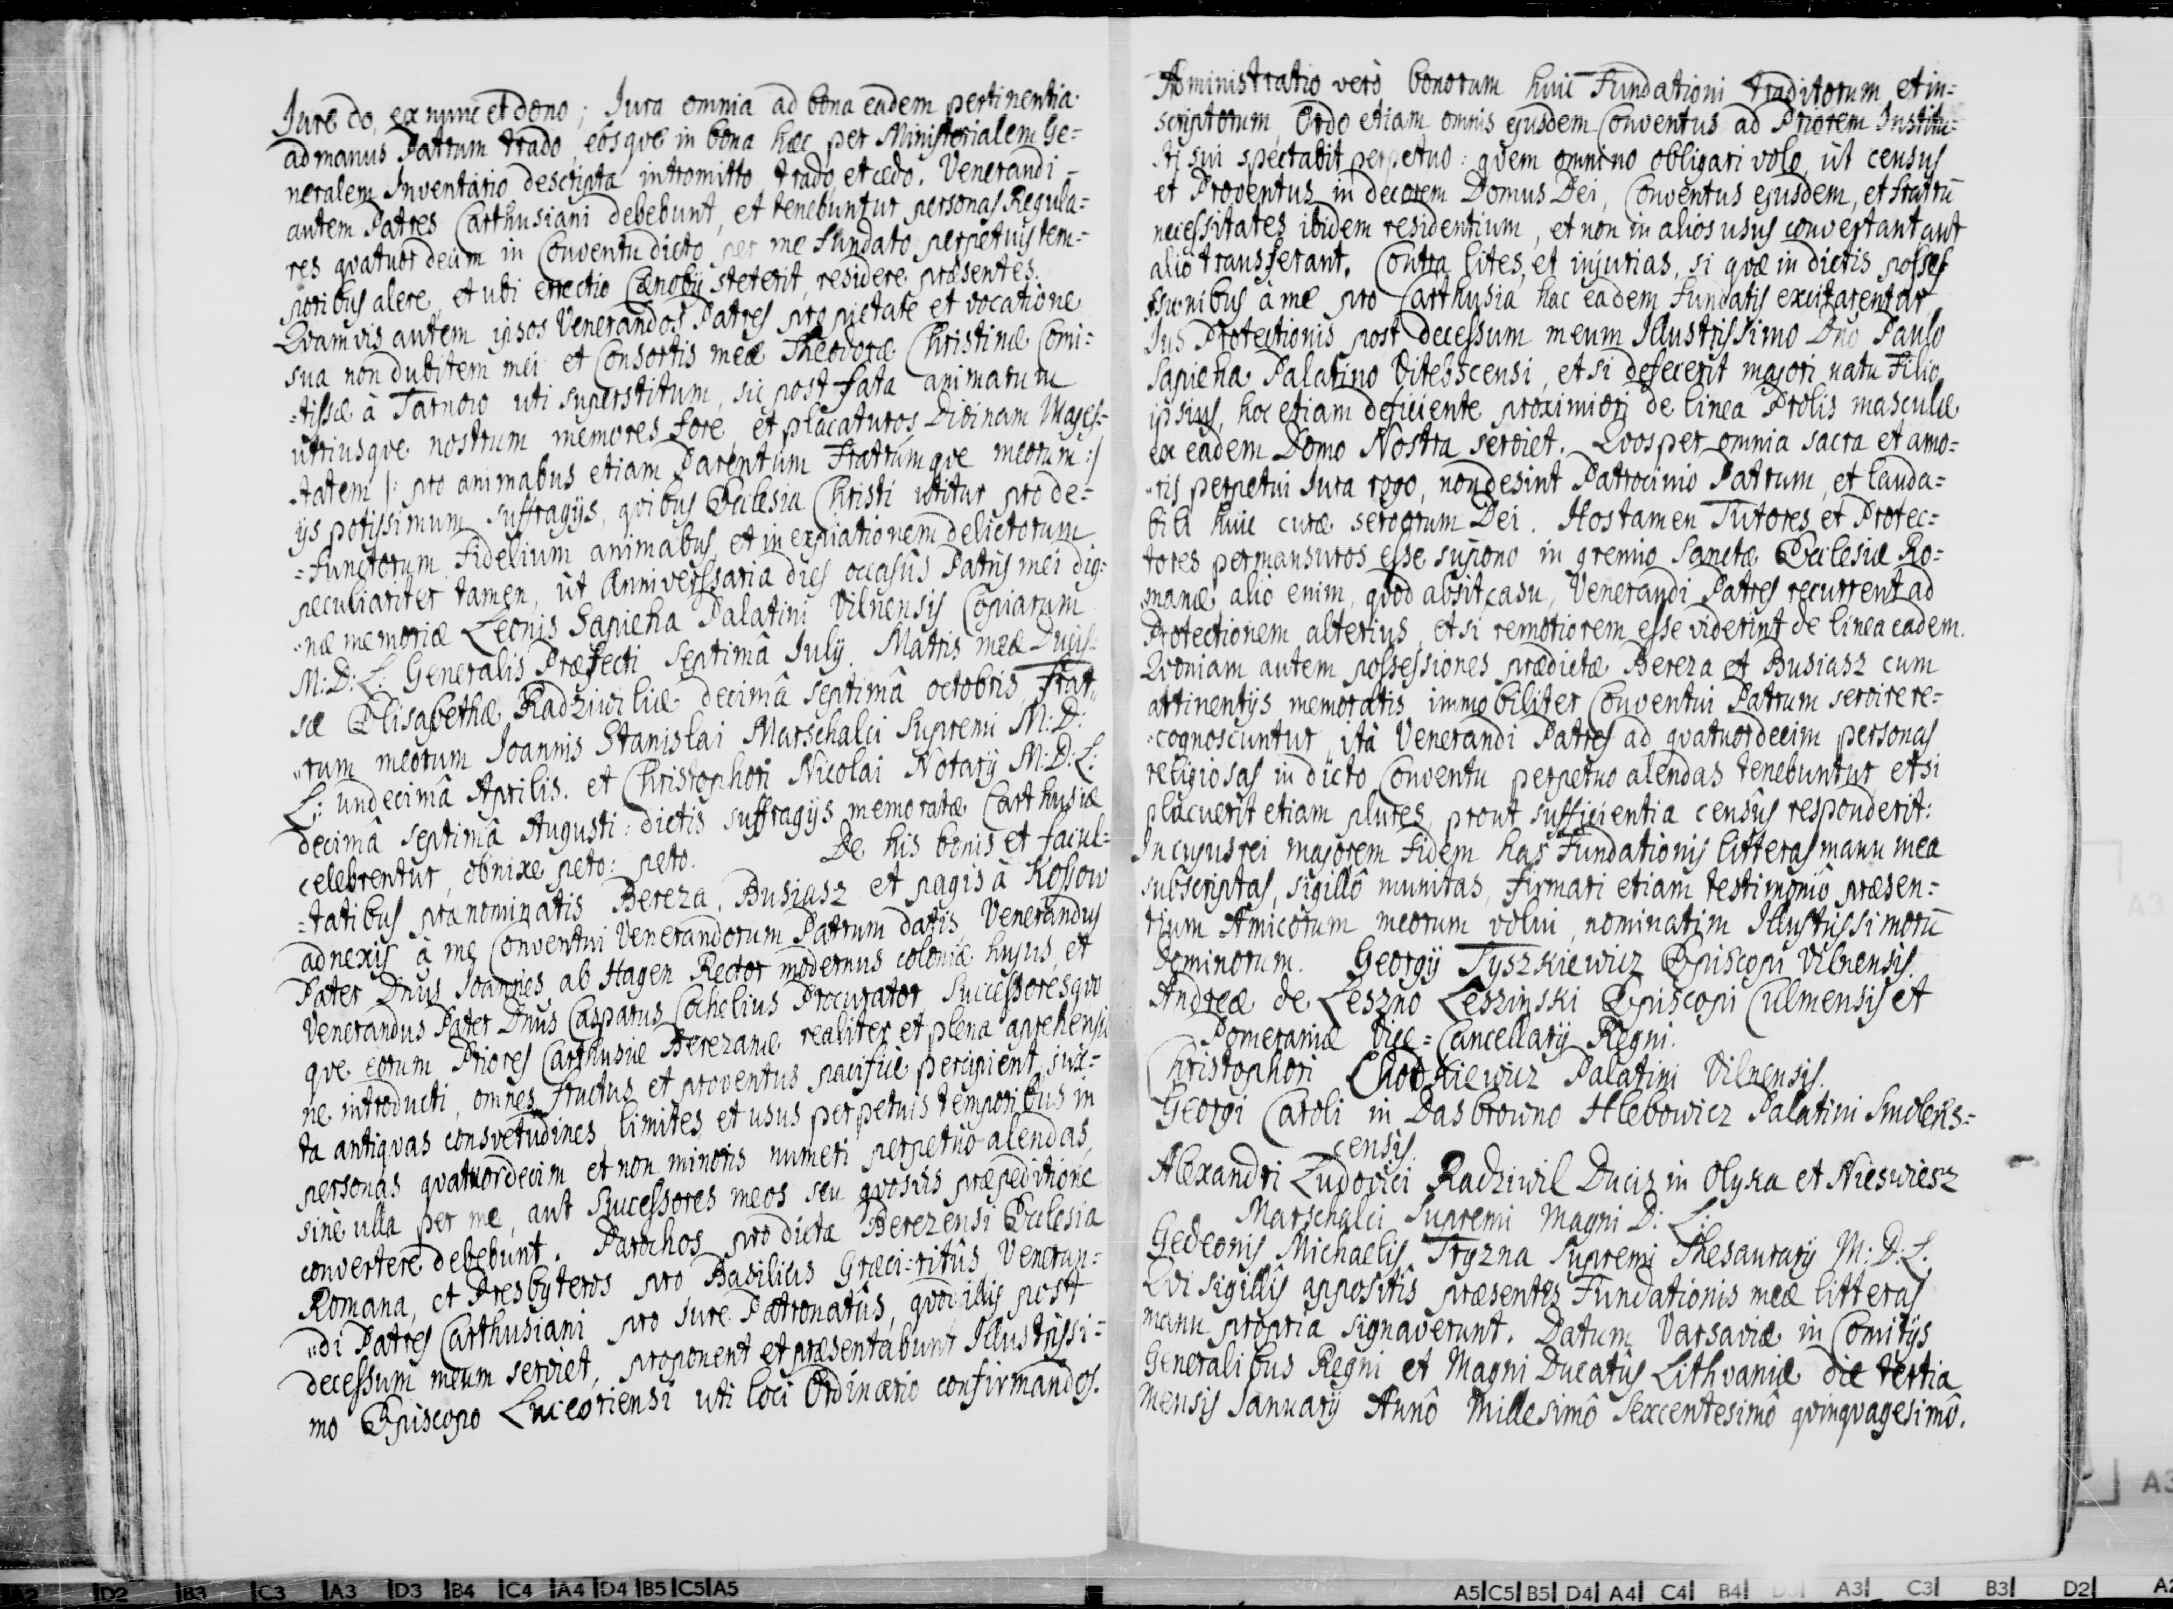 Jure do, ex nunc et dono; Jura omnia ad bona eadem pertinentia
ad manus Patrum trado, eosqve in bona hæc per Ministerialem Ge=
neralem Inventario descripta intromitto trado, et cedo. Venerandi
autem Patres Carthusiani debebunt, et tenebuntur personas Regula=
res qvatuordecim in Conventu dicto per me fundato perpetuis tem=
poribus alere, et ubi errectio Cænobij steterit, residere præsentes.
Qvamvis autem ipsos Venerandos Patres pro pietate et vocatione
sua non dubitem mei et Consortis meæ Theodoræ Christinæ Comi=
=tissæ à Tarnow uti superstitum, sic post fata animarum
utriusqve nostrum memores fore, et placaturos Divinam Majes=
tatem |: pro animabus etiam Parentum Fratrúmqve meorum :|
ijs potissimum suffragijs, qvibus Ecclesia Christi utitur pro de=
=functorum Fidelium animabus, et in expiationem delictorum
peculiariter tamen, ùt Anniverssaria dies occasûs Patris mei dig=
næ memoriæ Leonis Sapieha Palatini Vilnensis Copiarum
M: D: L: Generalis Præfecti septimâ Julij. Matris meæ Ducis=
sæ Elisabethæ Radziwiliæ decimâ septimâ octobris, Frat=
rum meorum Joannis Stanislai Marschalci Supremi M: D:
L: undecimâ Aprilis. et Christophori Nicolai Notarij M: D: L:
decimâ septimâ Augusti: dictis suffragijs memoratæ Carthusiæ
celebrentur, obnixe peto: peto. De his bonis et facul=
=tatibus prænominatis Bereza, Busiasz et pagis à Kossow
adnexis à me Conventui Venerandorum Patrum datis, Venerandus
Pater Dnus Joannes ab Hagen Rector modernus coloniæ hujus, et
Venerandus Pater Dnus Casparus Cochelius Procurator, Successoresqve
qve eorum Priores Carthusiæ Berezanæ realiter et plena aprehensio
ne introducti, omnes fructus et proventus pacificè percipient, jux=
ta antiqvas consvetudines, limites et usus perpetuis temporibus in
personas qvatuordecim et non minoris numeri perpetuò alendas,
sinè ulla per me, aut Successores meos seu qvosvis præpeditione
convertere debebunt. Parochos pro dicta Berezensi Ecclesia
Romana, et Presbyteros pro Basilicis Græci=ritûs Veneran=
di Patres Carthusiani pro Jure Patronatûs, qvod illis post
decessum meum serviet, proponent et præsentabunt Illustrissi=
mo Episcopo Luceoriensi uti loci Ordinario confirmandos.
Administratio verò bonorum huic Fundationi traditorum et in=
scriptorum, Ordo etiam omnis ejusdem Conventus ad Priorem Institu=
ti sui spectabit perpetuo: qvem omnino obligari volo, ùt census
et Proventus in decorem Domus Dei, Conventus ejusdem, et fratrū
necessitates ibidem residentium, et non in alios usus convertant aut
aliò transferant. Contra lites, et injurias, si qvæ in dictis posses
ssionibus à me pro Carthusia hac eadem fundatis excitarentur,
Jus Protectionis post decessum meum Illustrissimo Dno Paulo
Sapieha Palatino Vitebscensi, et si defecerit majori natu Filio
ipsius, hoc etiam deficiente proximiori de linea Prolis masculæ
ex eadem Domo Nostra serviet. Qvos per omnia sacra et amo=
ris perpetui Jura rogo, non desint Patrocinio Patrum, et lauda=
bili huic curæ servorum Dei. Hos tamen Tutores et Protec=
tores permansuros esse supono in gremio Sanctæ Ecclesiæ Ro=
manæ, aliò enim, qvod absit, casu, Venerandi Patres recurrent ad
Protectionem alterius, et si remotiorem esse viderint de linea eadem.
Qvoniam autem possessiones prædictæ Bereza et Busiasz cum
attinentijs memoratis immobiliter Conventui Patrum servire re=
cognoscuntur, ità Venerandi Patres ad qvatuordecim personas
religiosas in dicto Conventu perpetuo alendas tenebuntur, et si
placuerit etiam plures, prout sufficientia censûs responderit:
In cujus rei majorem Fidem has Fundationis litteras manu mea
subscriptas, sigillô munitas, firmari etiam testimoniô præsen=
tium Amicorum meorum volui, nominatim Illustrissimorū
Dominorum. Georgij Tyszkiewicz Episcopi Vilnensis.
Andreæ de Leszno Leszinski Episcopi Culmensis et
Pomeraniæ Vice=Cancellarij Regni.
Christophori Chodkiewicz Palatini Vilnensis.
Georgi Caroli in Dasbrowno Hlebowicz Palatini Smolens=
censis.
Alexandri Ludovici Radziwil Ducis in Olyka et Nieswiesz
Marschalci Supremi Magni D: L:
Gedeonis Michaelis Tryzna Supremi Thesaurarij M: D: L.
Qvi sigillis appositis præsentes Fundationis meæ litteras
manu propria signaverunt. Datum Varsaviæ in Comitijs
Generalibus Regni et Magni Ducatûs Lithvaniæ die tertia
mensis Januarij Annô Millesimô Sexcentesimô qvinqvagesimô.
A2 D2 B3 C3 A3 D3 B4 C4 A4 D4 B5 C5 A5
A5 C5 B5 D4 A4 C4 B4 D3 A3 C3 B3 D2 A2